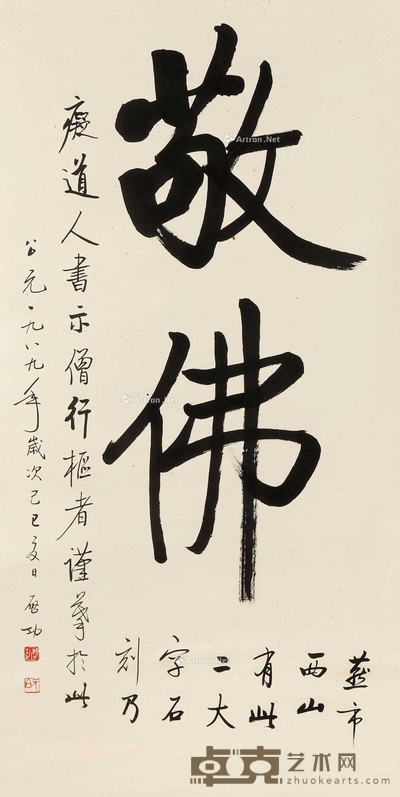 敬佛
燕市
西山
有此
二大
字石
刻乃
癡道人書示僧行樞者謹摹於此
公元一九八九年歲次己巳夏日 启功
Artron.Net
Artron.Net
Artron.Net
卓克艺术网
zhuokearts.com